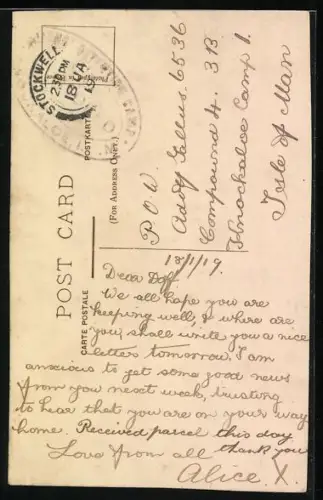 POST CARD
CARTE POSTALE
POSTKARTE
(FOR ADDRESS ONLY.)
STOCKWELL
2.30 PM
18 JA
19
P.O.W.
Adolf 6536
Compound 4. 3B
Knockaloe Camp 1.
Isle of Man
18/1/19.
Dear Dolf
We all hope you are
keeping well, & where are
you, shall write you a nice
letter tomorrow, I am
anxious to get some good news
from you next week, trusting
to hear that you are on your way
home. Received parcel this day
thank you
Love from all
Alice X.